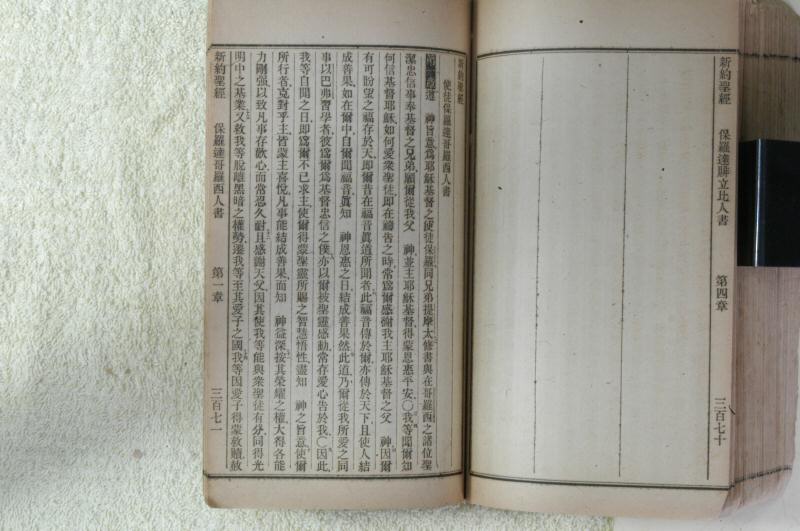 新約聖經 保羅達腓立比人書 第四章 三百七十
新約聖經
使徒保羅達哥羅西人書
遵 神旨意爲耶穌基督之使徒保羅同兄弟提摩太修書與在哥羅西之諸位聖
潔忠信事奉基督之兄弟願爾從我父 神並主耶穌基督得蒙恩惠平安〇我等聞爾如
何信基督耶穌如何愛衆聖徒即在禱告之時常爲爾感謝我主耶穌基督之父 神因爾
有可盼望之福存於天即爾昔在福音眞道所聞者此福音傳於爾亦傳於天下且使人結
成善果如在爾中自爾聞福音眞知 神恩惠之日結成善果然此道乃爾從我所愛之同
事以巴弗習學者彼爲爾爲基督忠信之僕亦以爾被聖靈感動常存愛心告於我〇因此
我等自聞之日即爲爾不已求主使爾得蒙聖靈所賜之智慧悟性盡知 神之旨意使爾
所行者克對乎主皆蒙主喜悅凡事能結成善果而知 神益深按其榮耀之權大得各能
力剛强以致凡事存歡心而常忍久耐且感謝天父因其使我等能與衆聖徒有分同得光
明中之基業又救我等脫離黑暗之權勢遷我等至其愛子之國我等因愛子得蒙救贖赦
新約聖經 保羅達哥羅西人書 第一章 三百七一